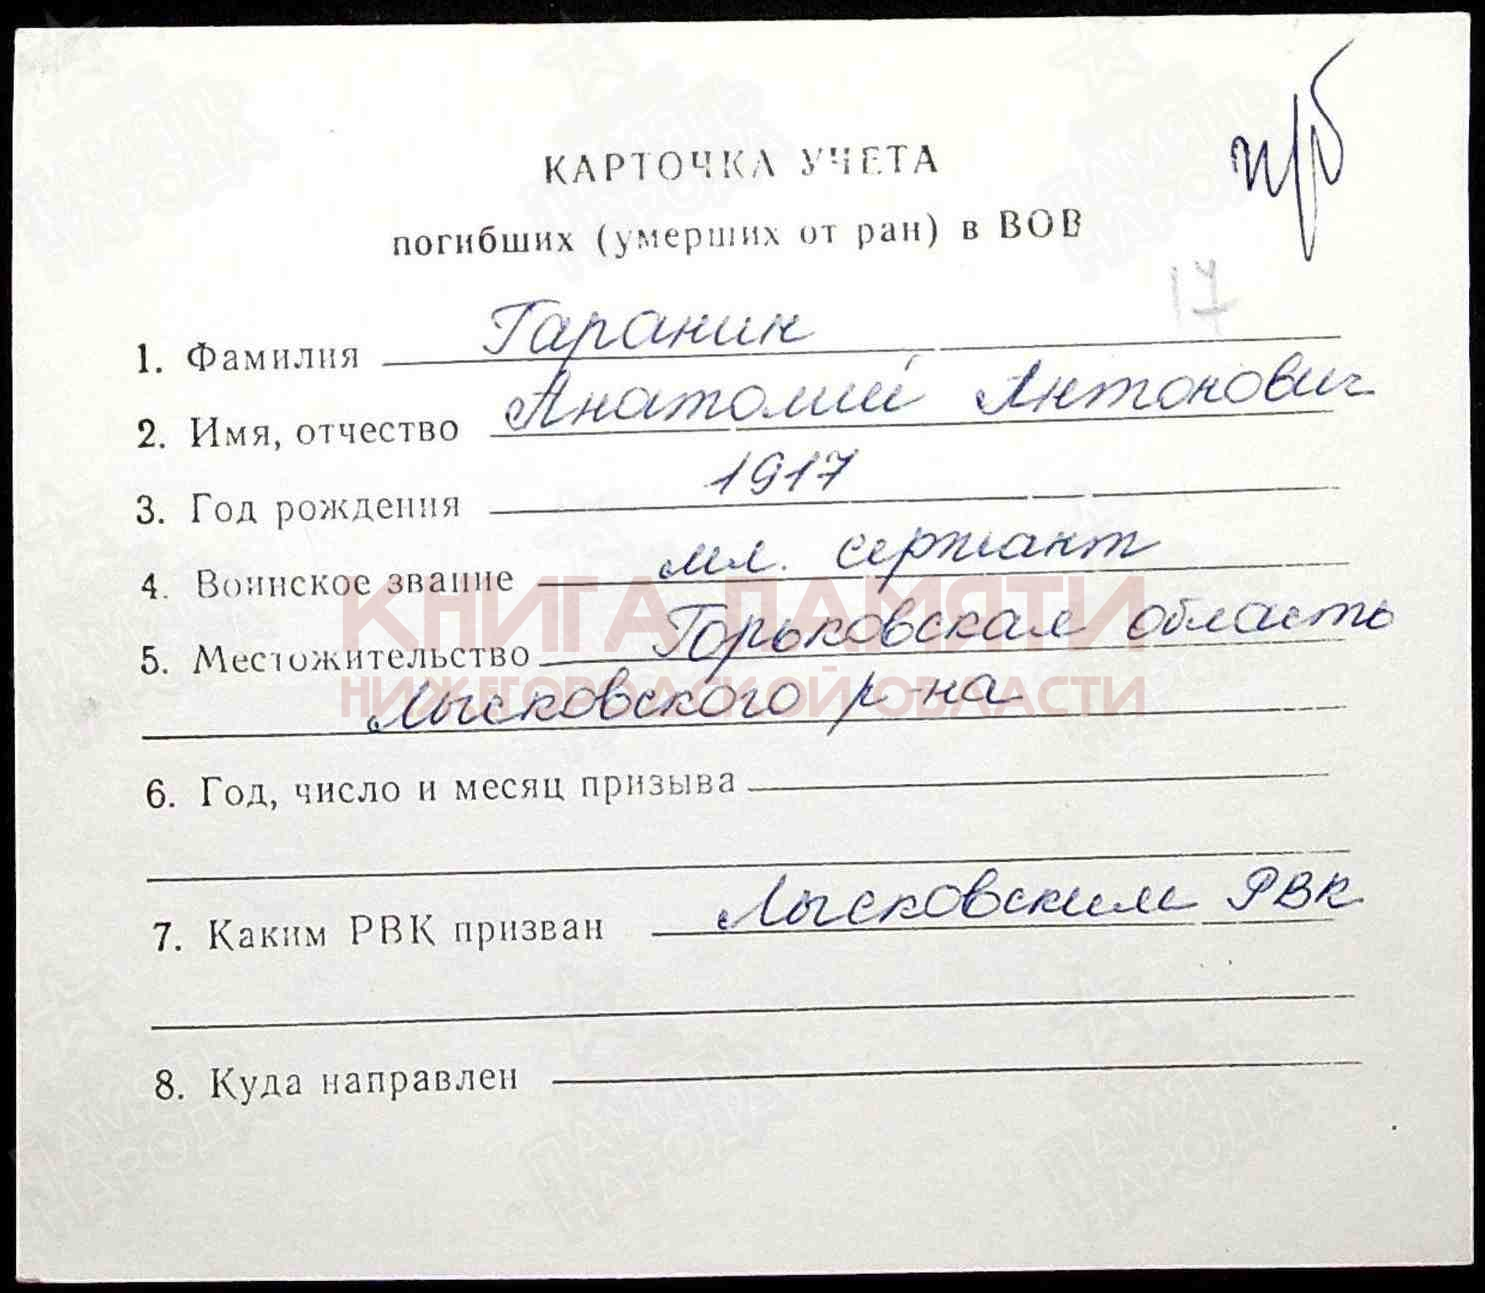 прб
КАРТОЧКА УЧЕТА
погибших (умерших от ран) в ВОВ
17
1. Фамилия Гаранин
2. Имя, отчество Анатолий Антонович
3. Год рождения 1917
4. Воинское звание мл. сержант
КНИГА ПАМЯТИ
5. Местожительство Горьковская область
НИЖЕГОРОДСКОЙ ОБЛАСТИ
Лысковского р-на
6. Год, число и месяц призыва
7. Каким РВК призван Лысковским РВК
8. Куда направлен